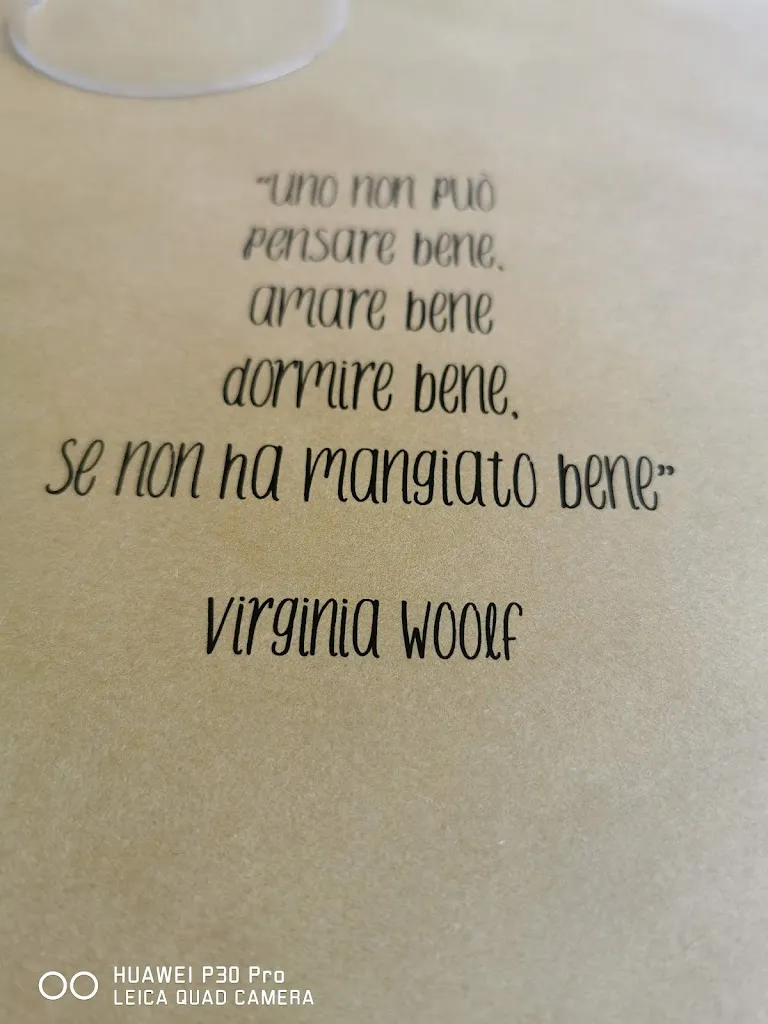 "uno non può
pensare bene,
amare bene
dormire bene,
se non ha mangiato bene”
Virginia Woolf
HUAWEI P30 Pro
LEICA QUAD CAMERA